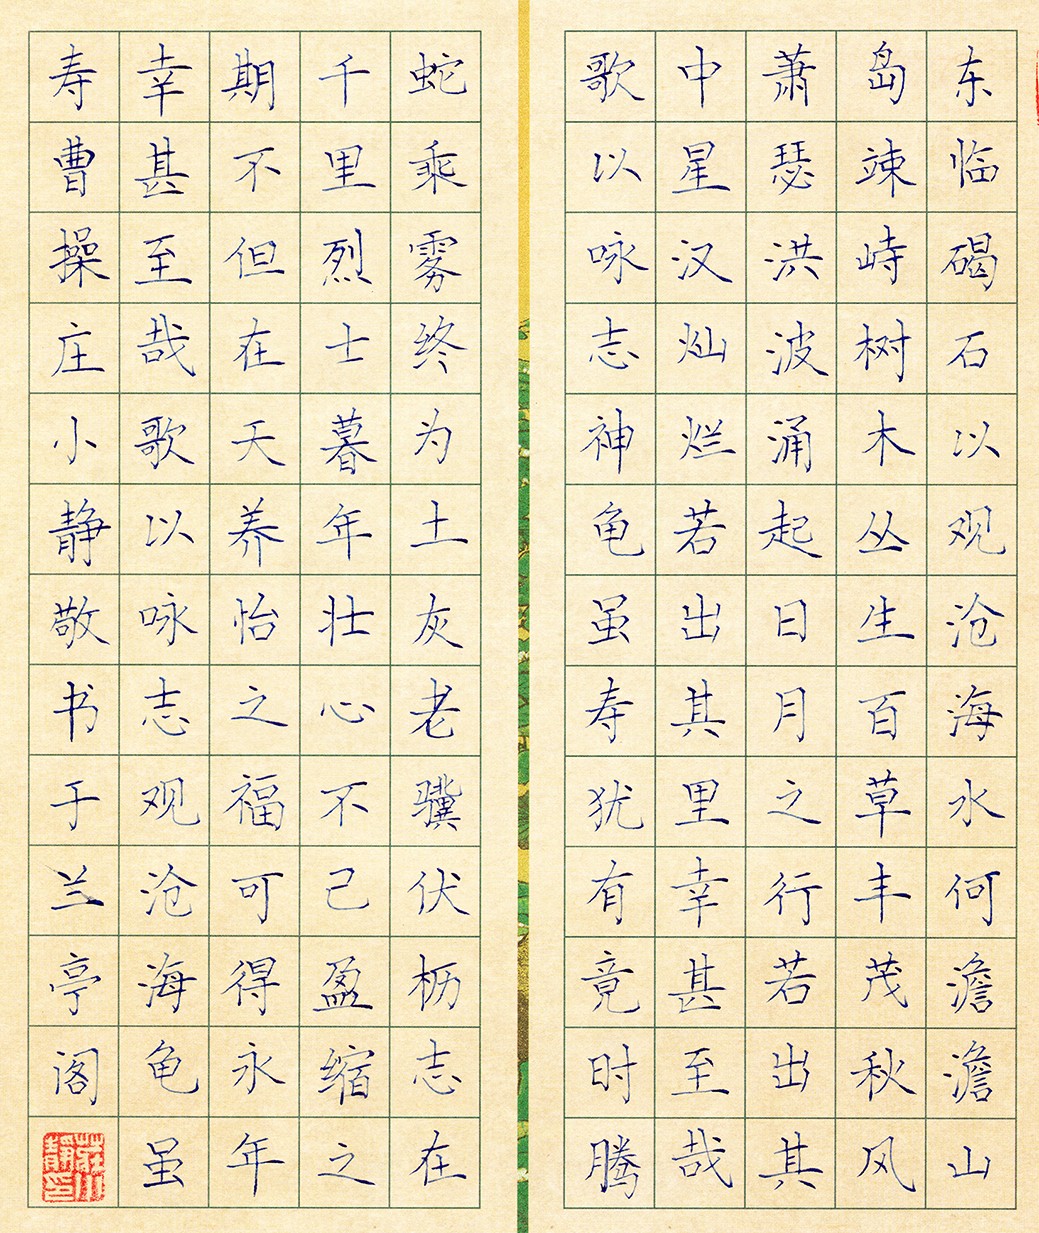 东临碣石以观沧海水何澹澹山
岛竦峙树木丛生百草丰茂秋风
萧瑟洪波涌起日月之行若出其
中星汉灿烂若出其里幸甚至哉
歌以咏志神龟虽寿犹有竟时腾
蛇乘雾终为土灰老骥伏枥志在
千里烈士暮年壮心不已盈缩之
期不但在天养怡之福可得永年
幸甚至哉歌以咏志观沧海龟虽
寿曹操庄小静敬书于兰亭阁
莊小靜印